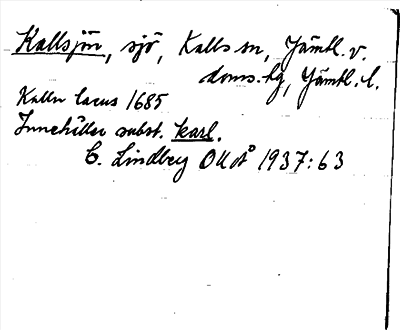 Kallsjön, sjö, Kalls sn, Jämtl. v.
doms. hg, Jämtl. l.
Kalln lacus 1685
Innehåller subst. karl.
C. Lindberg OUÅ 1937:63